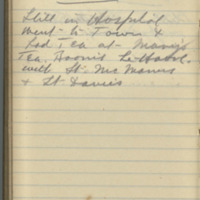 Still in Hospital
went to Town &
had Tea at Mary's
Tea Rooms Le Havre
with Lt. Mc Manus
& Lt Davies